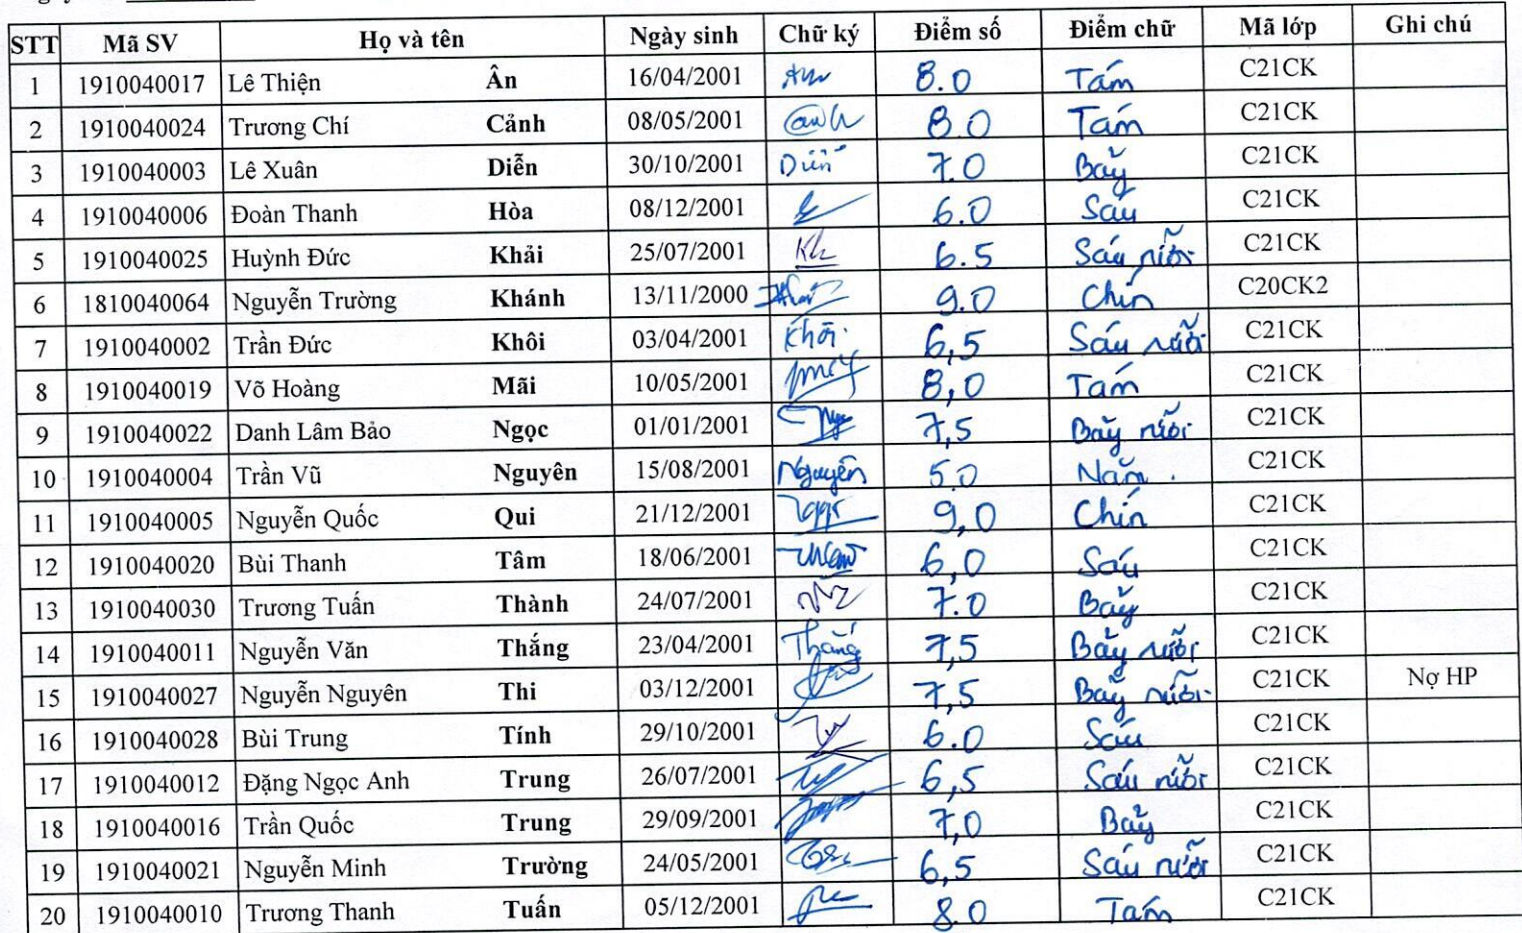 STT Mã SV Họ và tên Ngày sinh Chữ ký Điểm số Điểm chữ Mã lớp Ghi chú
1 1910040017 Lê Thiện Ân 16/04/2001 8.0 Tám C21CK
2 1910040024 Trương Chí Cảnh 08/05/2001 8.0 Tám C21CK
3 1910040003 Lê Xuân Diễn 30/10/2001 7.0 Bảy C21CK
4 1910040006 Đoàn Thanh Hòa 08/12/2001 6.0 Sáu C21CK
5 1910040025 Huỳnh Đức Khải 25/07/2001 Kh 6.5 Sáu rưỡi C21CK
6 1810040064 Nguyễn Trường Khánh 13/11/2000 9.0 Chín C20CK2
7 1910040002 Trần Đức Khôi 03/04/2001 Khôi 6,5 Sáu rưỡi C21CK
8 1910040019 Võ Hoàng Mãi 10/05/2001 8,0 Tám C21CK
9 1910040022 Danh Lâm Bảo Ngọc 01/01/2001 7,5 Bảy rưỡi C21CK
10 1910040004 Trần Vũ Nguyên 15/08/2001 Nguyên 5.0 Năm. C21CK
11 1910040005 Nguyễn Quốc Qui 21/12/2001 9,0 Chín C21CK
12 1910040020 Bùi Thanh Tâm 18/06/2001 6,0 Sáu C21CK
13 1910040030 Trương Tuấn Thành 24/07/2001 7.0 Bảy C21CK
14 1910040011 Nguyễn Văn Thắng 23/04/2001 Thắng 7,5 Bảy rưỡi C21CK
15 1910040027 Nguyễn Nguyên Thi 03/12/2001 7,5 Bảy rưỡi C21CK Nợ HP
16 1910040028 Bùi Trung Tính 29/10/2001 6.0 Sáu C21CK
17 1910040012 Đặng Ngọc Anh Trung 26/07/2001 6,5 Sáu rưỡi C21CK
18 1910040016 Trần Quốc Trung 29/09/2001 7,0 Bảy C21CK
19 1910040021 Nguyễn Minh Trường 24/05/2001 6,5 Sáu rưỡi C21CK
20 1910040010 Trương Thanh Tuấn 05/12/2001 8.0 Tám C21CK